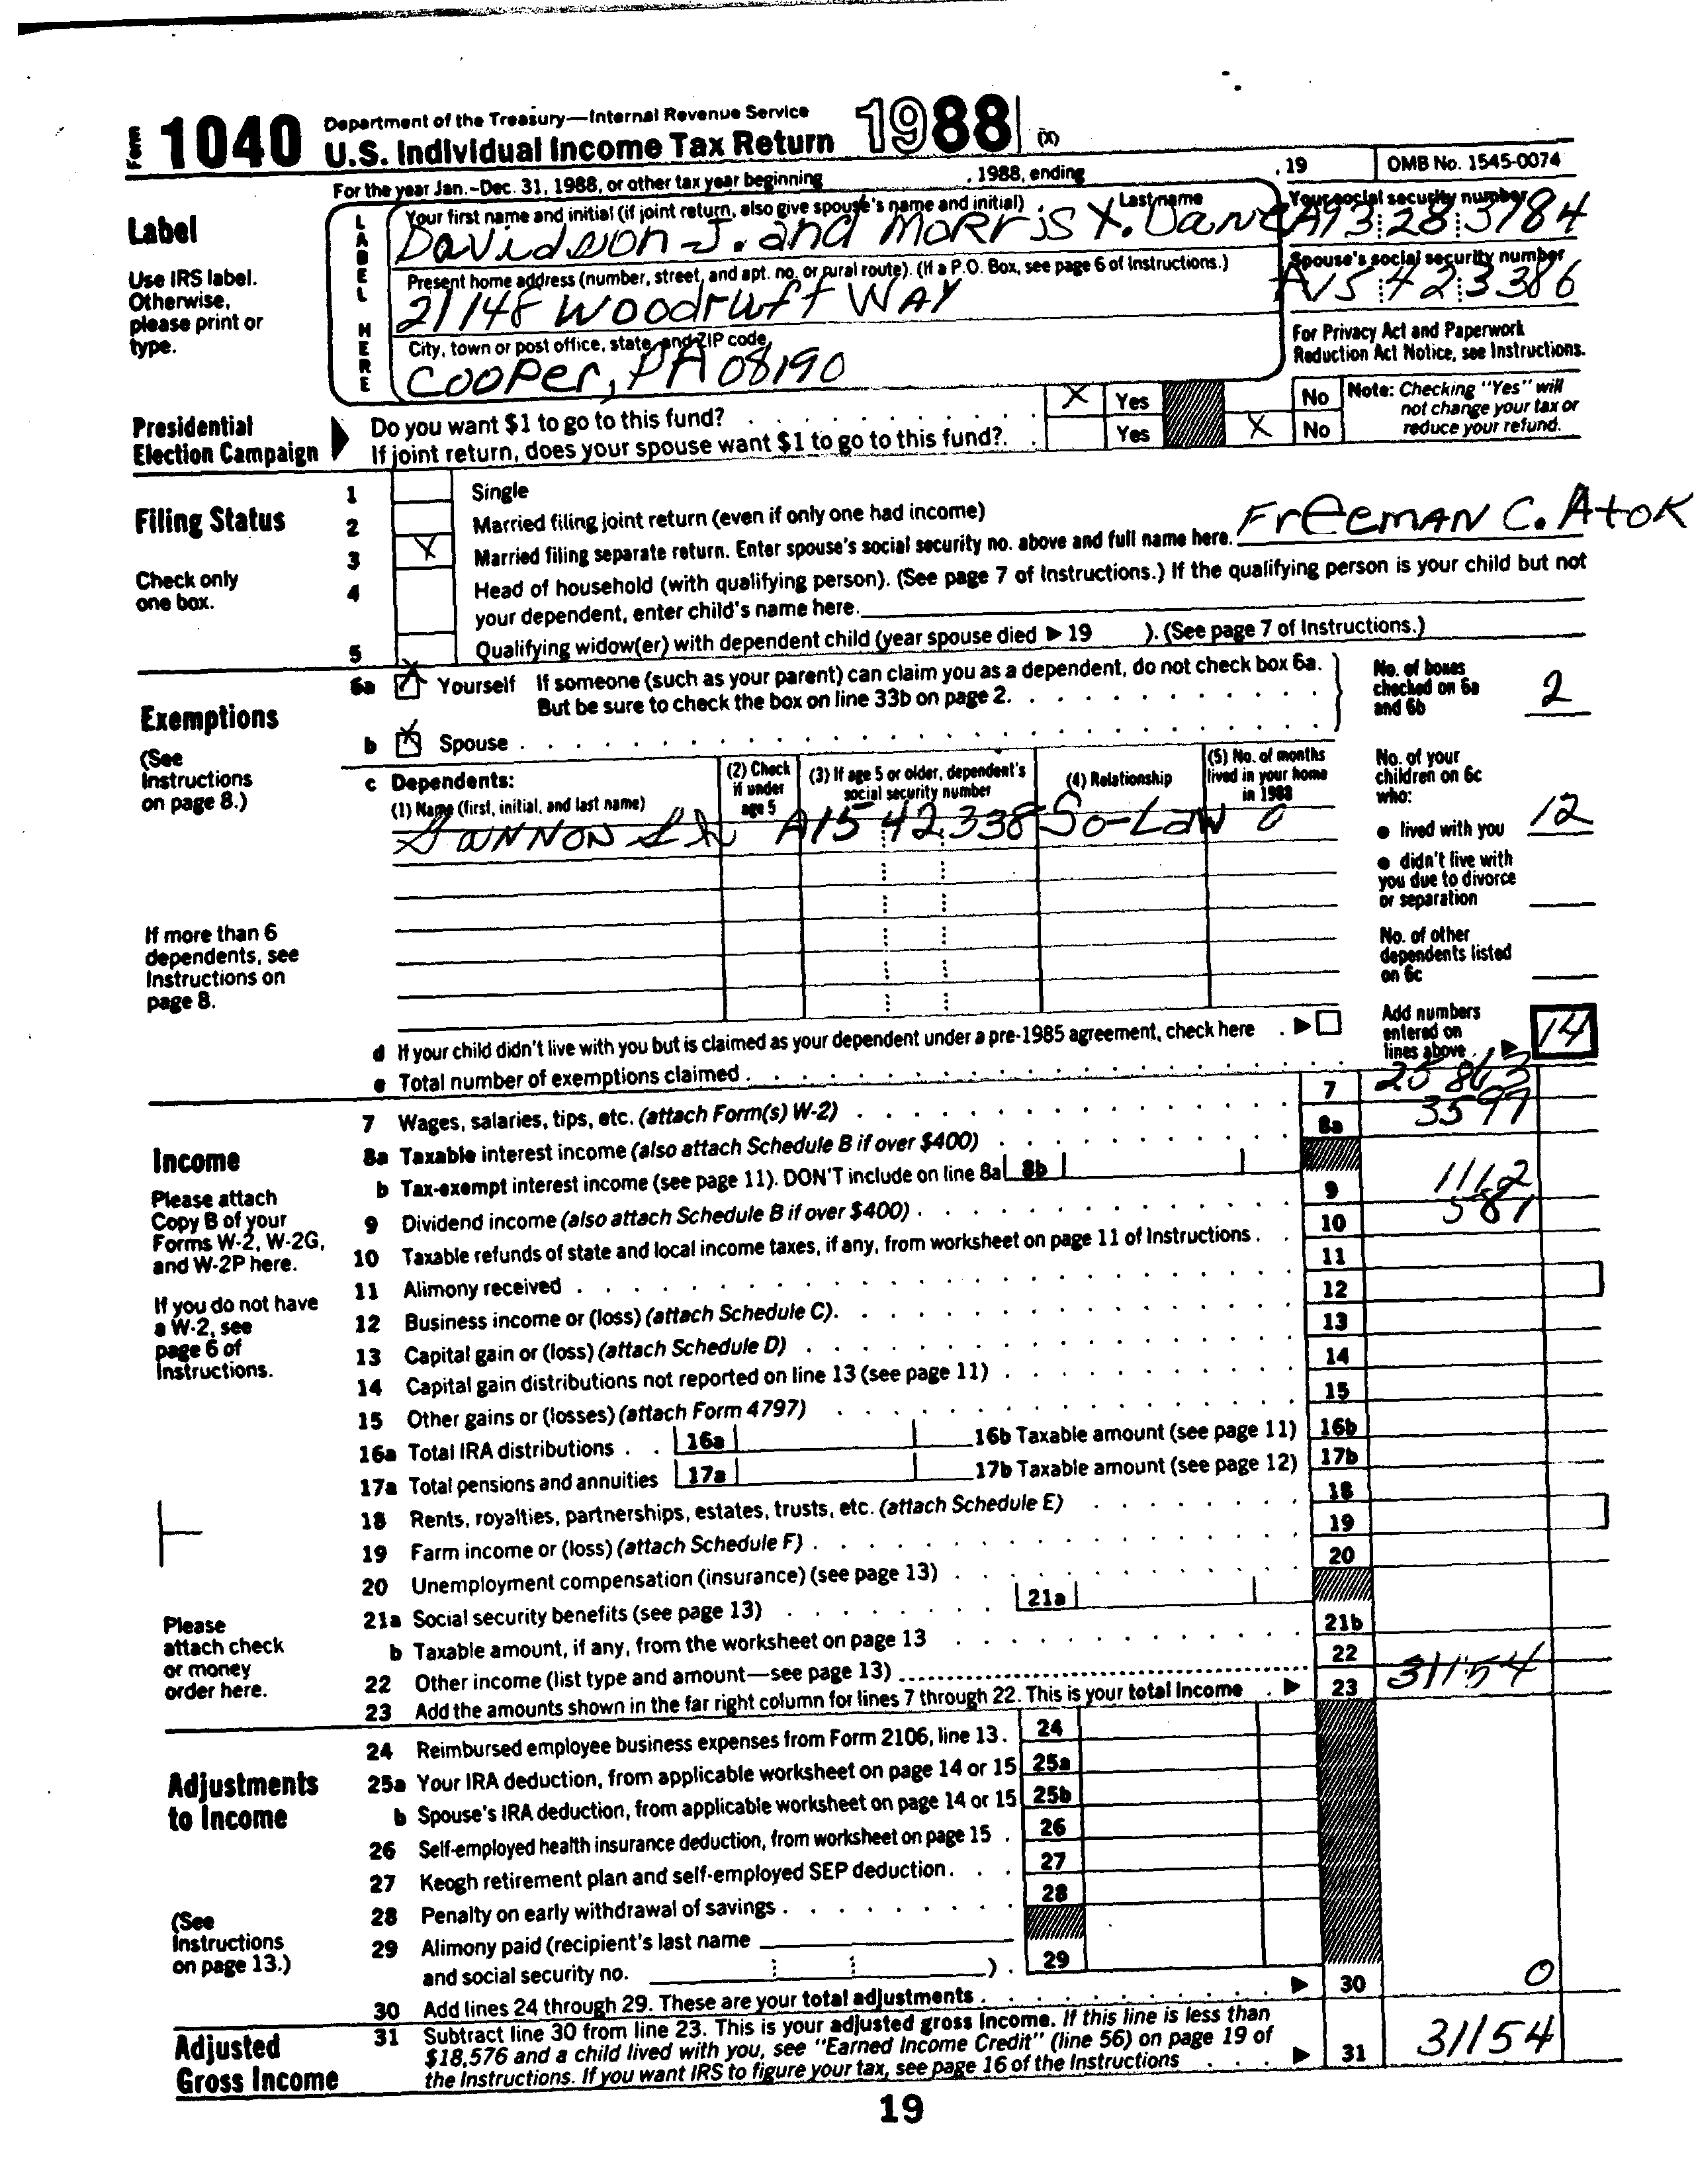 Form 1040 Department of the Treasury—Internal Revenue Service
U.S. Individual Income Tax Return 1988 (X)
For the year Jan.-Dec. 31, 1988, or other tax year beginning , 1988, ending , 19 OMB No. 1545-0074
Label
Use IRS label.
Otherwise,
please print or
type.
LABEL HERE
Your first name and initial (if joint return, also give spouse's name and initial) Last name
Davidson J. and Morris X.
Your social security number
A13 28 3184
Present home address (number, street, and apt. no. or rural route). (If a P.O. Box, see page 6 of Instructions.)
21148 Woodruff WAY
Spouse's social security number
A15 42 3386
City, town or post office, state, and ZIP code
Cooper, PA 08190
For Privacy Act and Paperwork
Reduction Act Notice, see Instructions.
Presidential
Election Campaign
Do you want $1 to go to this fund? X Yes No
If joint return, does your spouse want $1 to go to this fund? Yes X No
Note: Checking "Yes" will
not change your tax or
reduce your refund.
Filing Status
Check only
one box.
1 Single
2 Married filing joint return (even if only one had income)
3 X Married filing separate return. Enter spouse's social security no. above and full name here. Freeman C. Atok
4 Head of household (with qualifying person). (See page 7 of Instructions.) If the qualifying person is your child but not
your dependent, enter child's name here.
5 Qualifying widow(er) with dependent child (year spouse died ▶ 19 ). (See page 7 of Instructions.)
Exemptions
(See
Instructions
on page 8.)
6a X Yourself If someone (such as your parent) can claim you as a dependent, do not check box 6a.
But be sure to check the box on line 33b on page 2.
b X Spouse
No. of boxes
checked on 6a
and 6b 2
c Dependents:
(1) Name (first, initial, and last name)
(2) Check
if under
age 5
(3) If age 5 or older, dependent's
social security number
(4) Relationship
(5) No. of months
lived in your home
in 1988
A15 42 338 So-Law 0
No. of your
children on 6c
who:
● lived with you 12
● didn't live with
you due to divorce
or separation
No. of other
dependents listed
on 6c
If more than 6
dependents, see
Instructions on
page 8.
d If your child didn't live with you but is claimed as your dependent under a pre-1985 agreement, check here . ▶
e Total number of exemptions claimed
Add numbers
entered on
lines above ▶ 14
Income
Please attach
Copy B of your
Forms W-2, W-2G,
and W-2P here.
If you do not have
a W-2, see
page 6 of
Instructions.
Please
attach check
or money
order here.
7 Wages, salaries, tips, etc. (attach Form(s) W-2) 7 25 863
8a Taxable interest income (also attach Schedule B if over $400) 8a 3597
b Tax-exempt interest income (see page 11). DON'T include on line 8a 8b
9 Dividend income (also attach Schedule B if over $400) 9 1112
10 Taxable refunds of state and local income taxes, if any, from worksheet on page 11 of Instructions 10 581
11 Alimony received 11
12 Business income or (loss) (attach Schedule C) 12
13 Capital gain or (loss) (attach Schedule D) 13
14 Capital gain distributions not reported on line 13 (see page 11) 14
15 Other gains or (losses) (attach Form 4797) 15
16a Total IRA distributions 16a 16b Taxable amount (see page 11) 16b
17a Total pensions and annuities 17a 17b Taxable amount (see page 12) 17b
18 Rents, royalties, partnerships, estates, trusts, etc. (attach Schedule E) 18
19 Farm income or (loss) (attach Schedule F) 19
20 Unemployment compensation (insurance) (see page 13) 20
21a Social security benefits (see page 13) 21a
b Taxable amount, if any, from the worksheet on page 13 21b
22 Other income (list type and amount—see page 13) 22
23 Add the amounts shown in the far right column for lines 7 through 22. This is your total income ▶ 23 31154
Adjustments
to Income
(See
Instructions
on page 13.)
24 Reimbursed employee business expenses from Form 2106, line 13 24
25a Your IRA deduction, from applicable worksheet on page 14 or 15 25a
b Spouse's IRA deduction, from applicable worksheet on page 14 or 15 25b
26 Self-employed health insurance deduction, from worksheet on page 15 26
27 Keogh retirement plan and self-employed SEP deduction 27
28 Penalty on early withdrawal of savings 28
29 Alimony paid (recipient's last name
and social security no. ) 29
30 Add lines 24 through 29. These are your total adjustments ▶ 30 0
Adjusted
Gross Income
31 Subtract line 30 from line 23. This is your adjusted gross income. If this line is less than
$18,576 and a child lived with you, see "Earned Income Credit" (line 56) on page 19 of
the Instructions. If you want IRS to figure your tax, see page 16 of the Instructions ▶ 31 31154
19